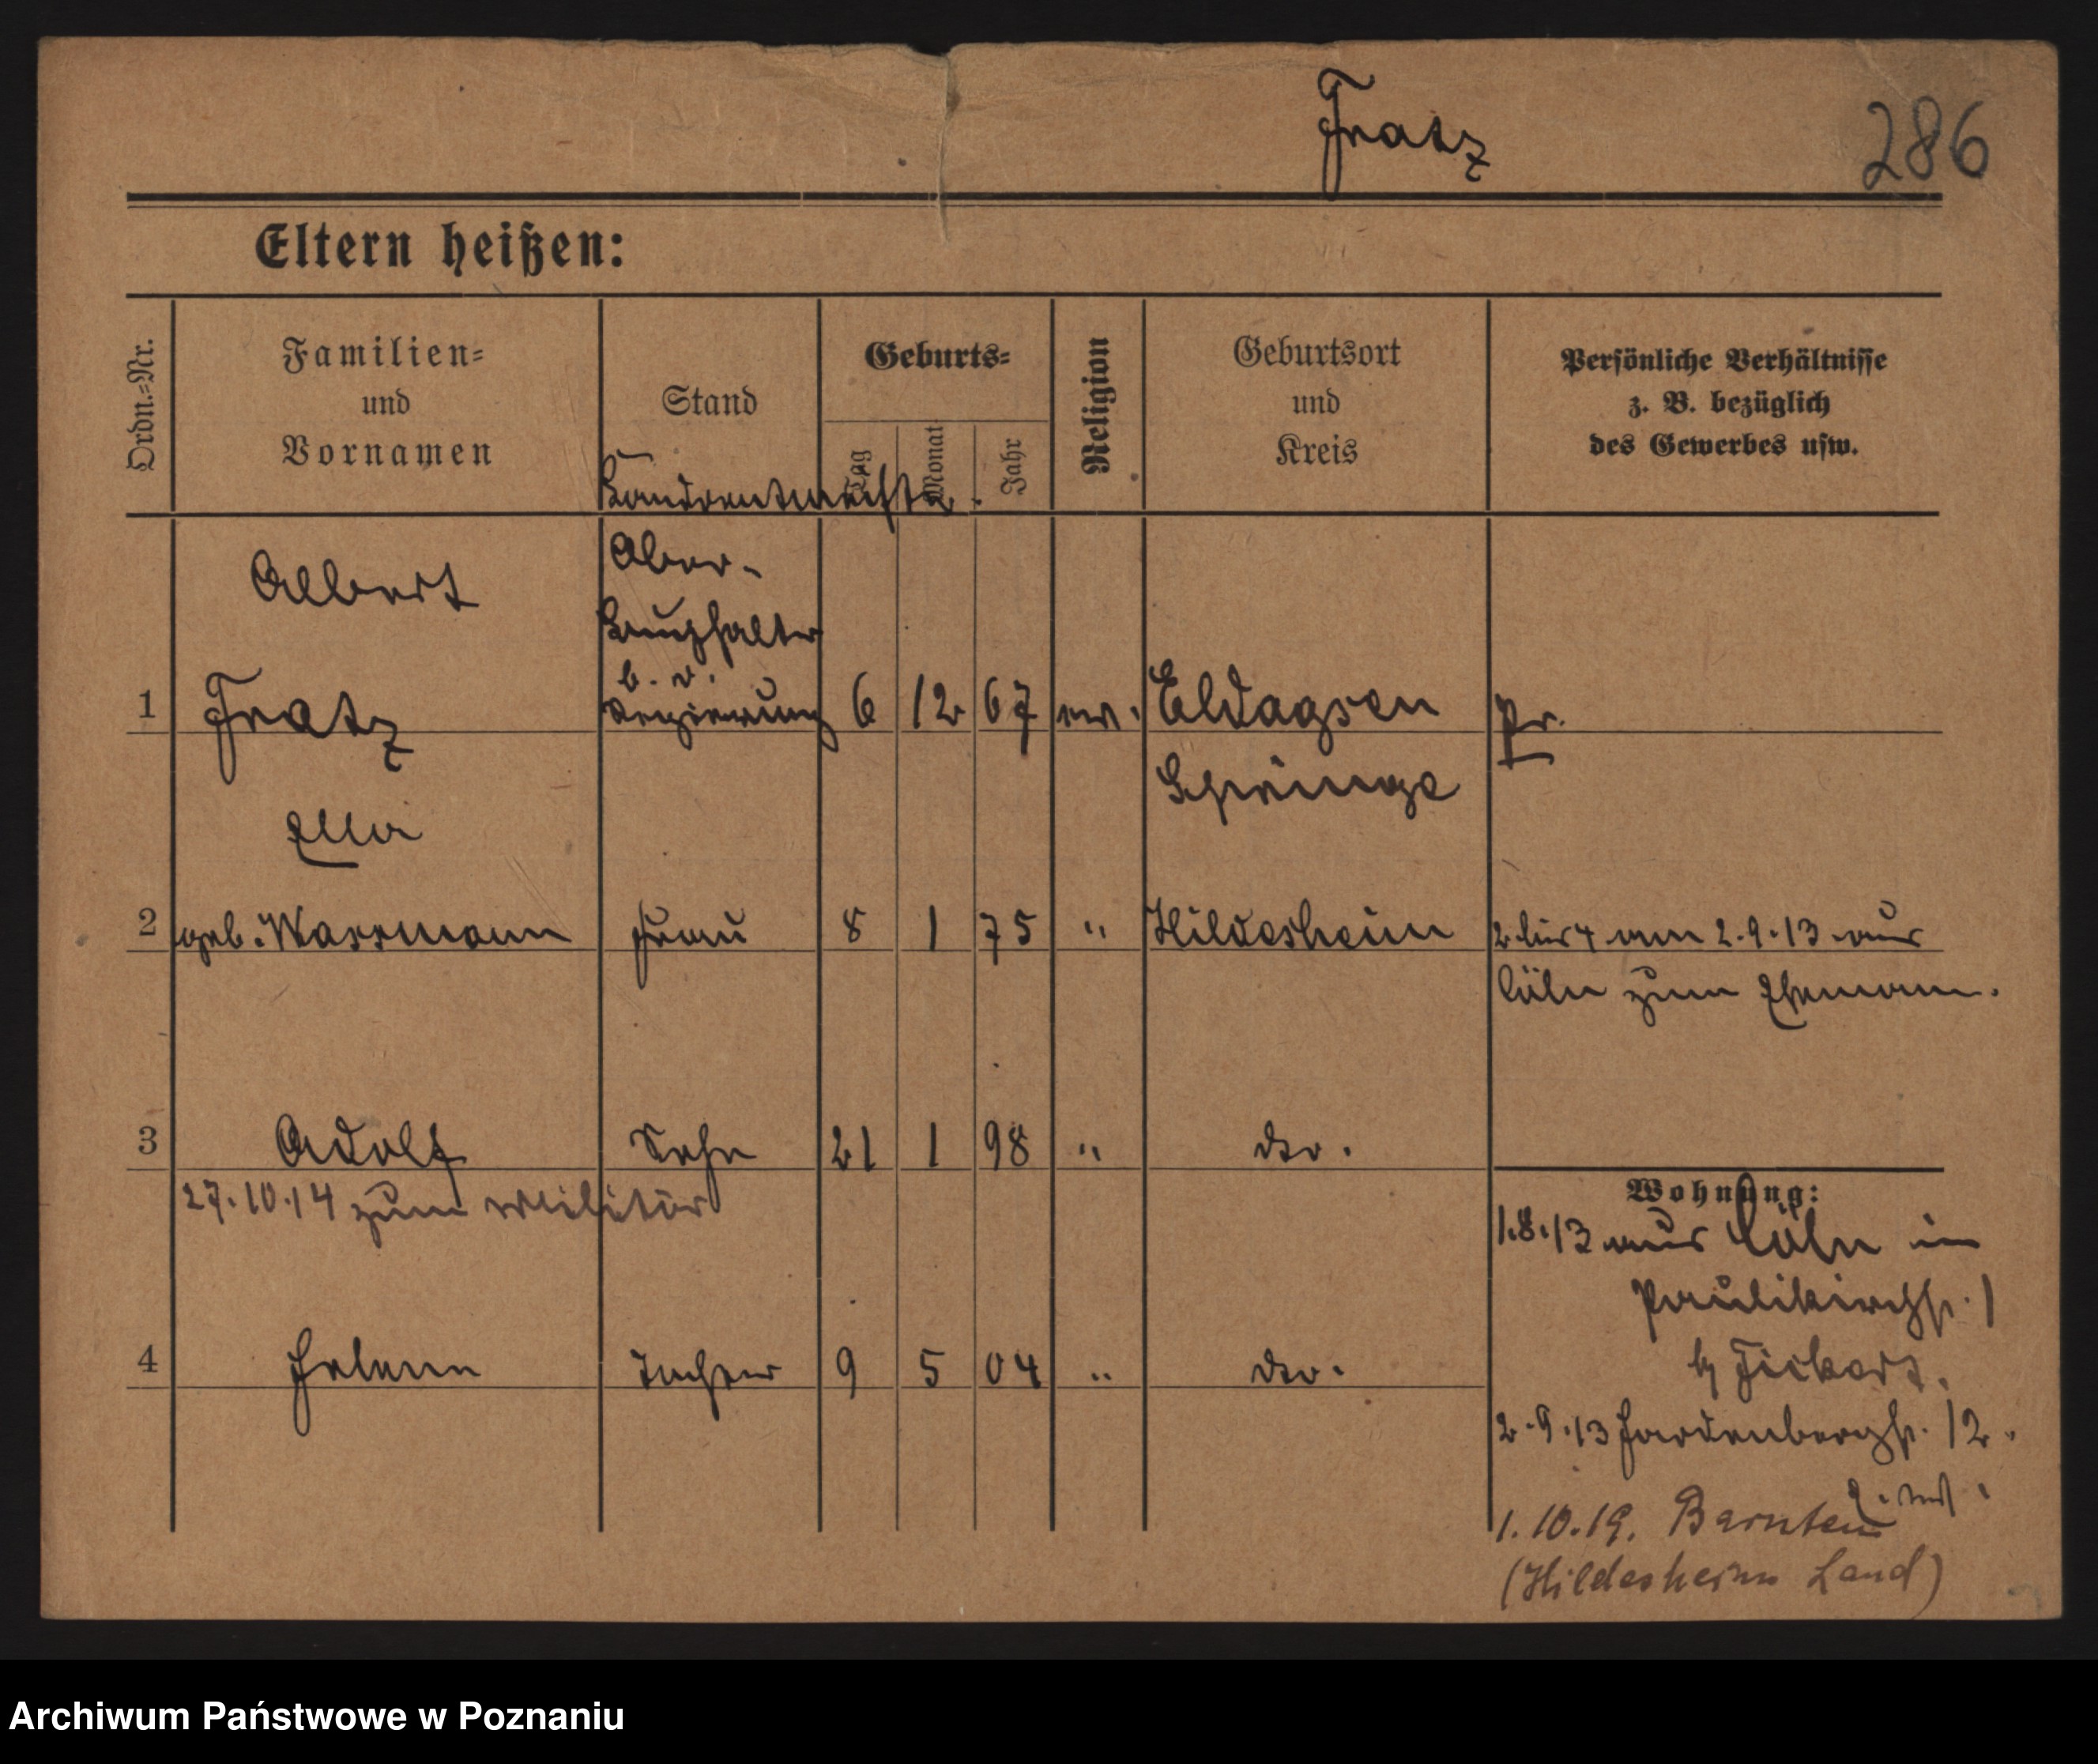 Fratz
286
Eltern heißen:
Ordn.-Nr.
Familien-
und
Vornamen
Stand
Geburts-
Tag
Monat
Jahr
Religion
Geburtsort
und
Kreis
Persönliche Verhältnisse
z. B. bezüglich
des Gewerbes usw.
Landrentmeister.
Albert
Ober-
Buchhalter
b. d.
1 Fratz Regierung 6 12 67 ev. Eldagsen pr.
Springe
Ella
2 geb. Wassmann Frau 8 1 75 " Hildesheim 2 bis 4 am 2.9.13 aus
Cöln zum Ehemann.
3 Adolf Sohn 21 1 98 " dso.
27.10.14 zum Militär
Wohnung:
1.8.13 aus Cöln in
Paulikirchstr. 1
b/
4 Helene Tochter 9 5 04 " dso.
2.9.13 Hardenbergstr. 12.
1.10.19. Barnten
(Hildesheim Land)
Archiwum Państwowe w Poznaniu